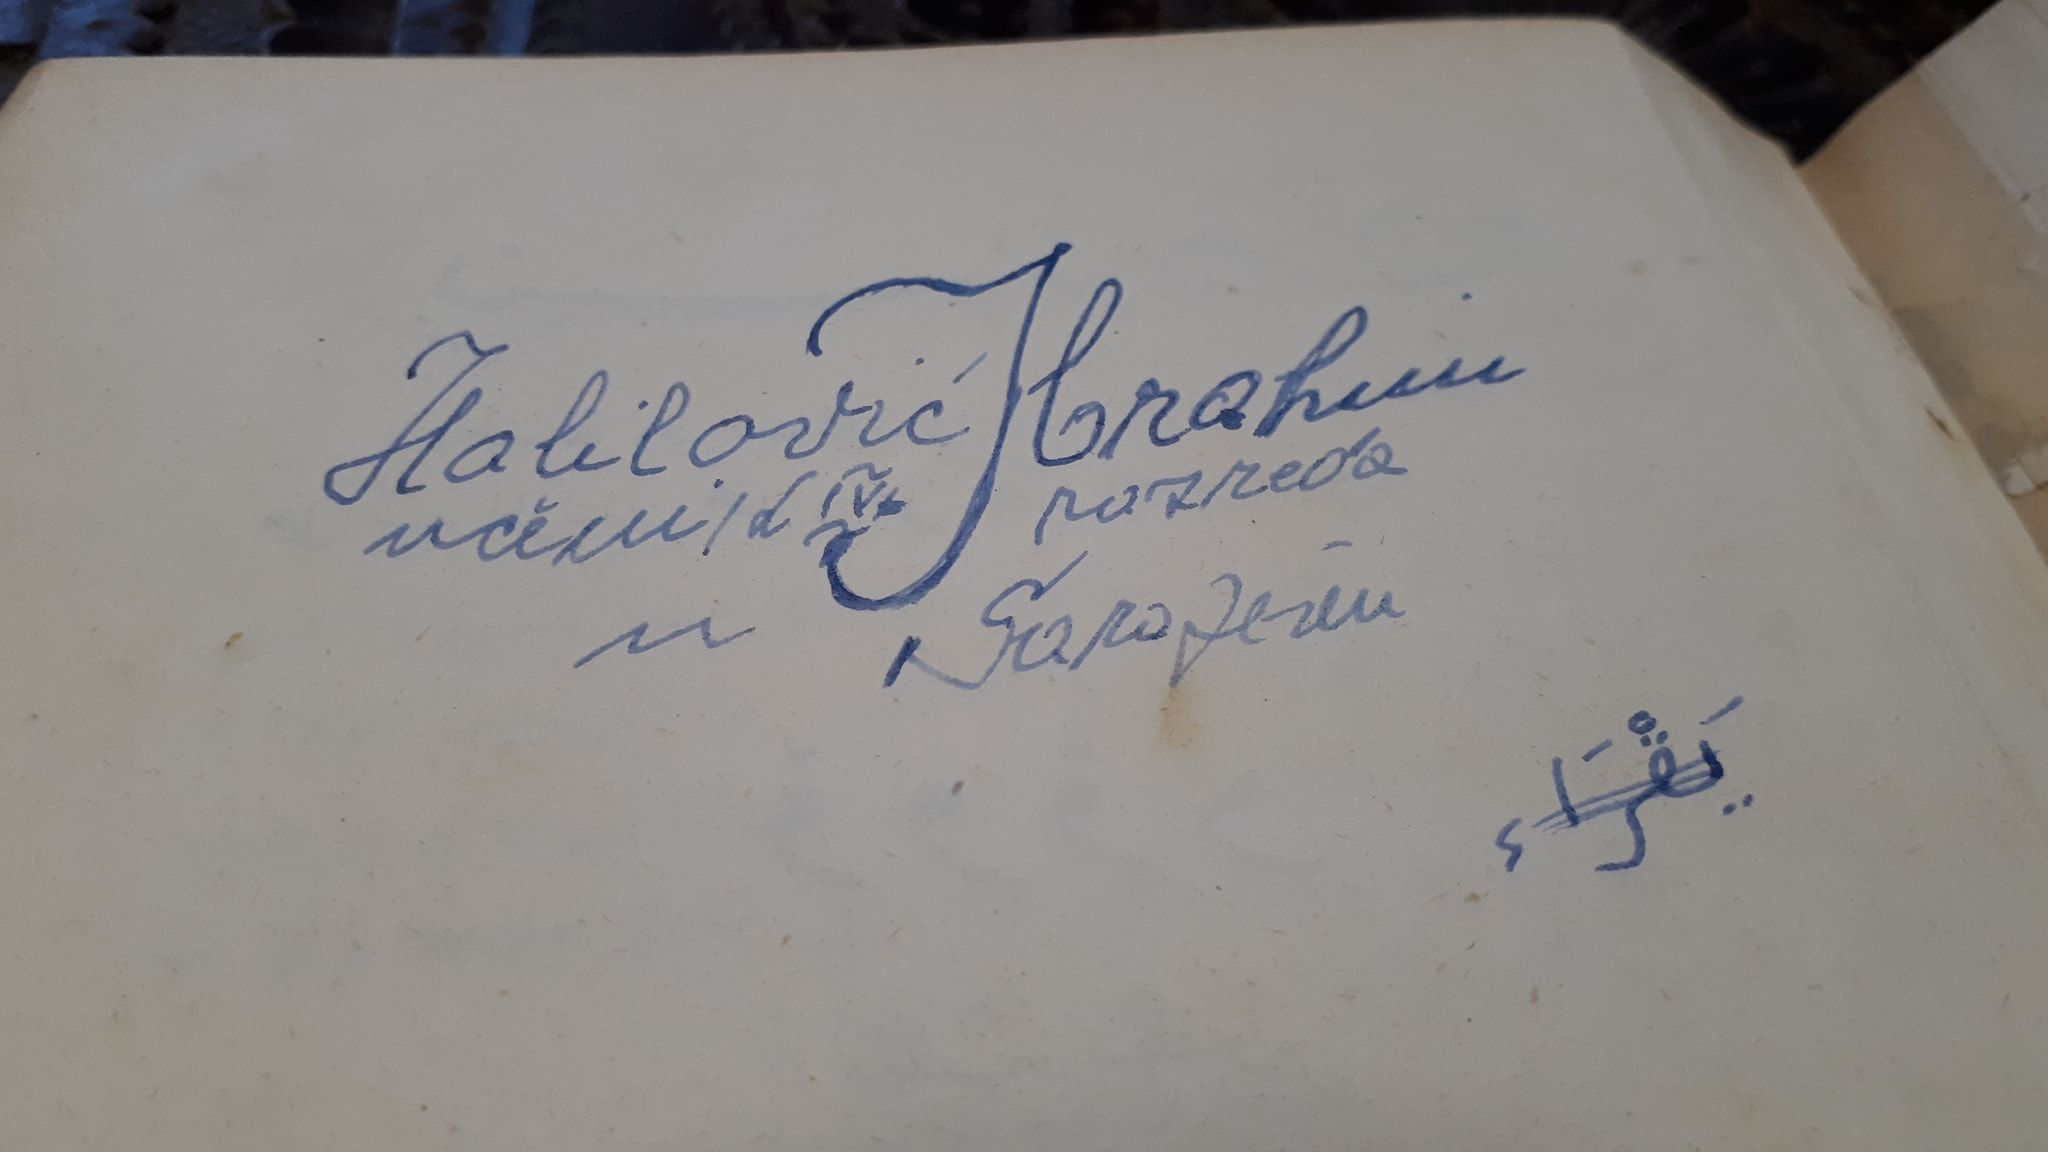 Halilović Ibrahim
učenik IV. razreda
u Sarajevu